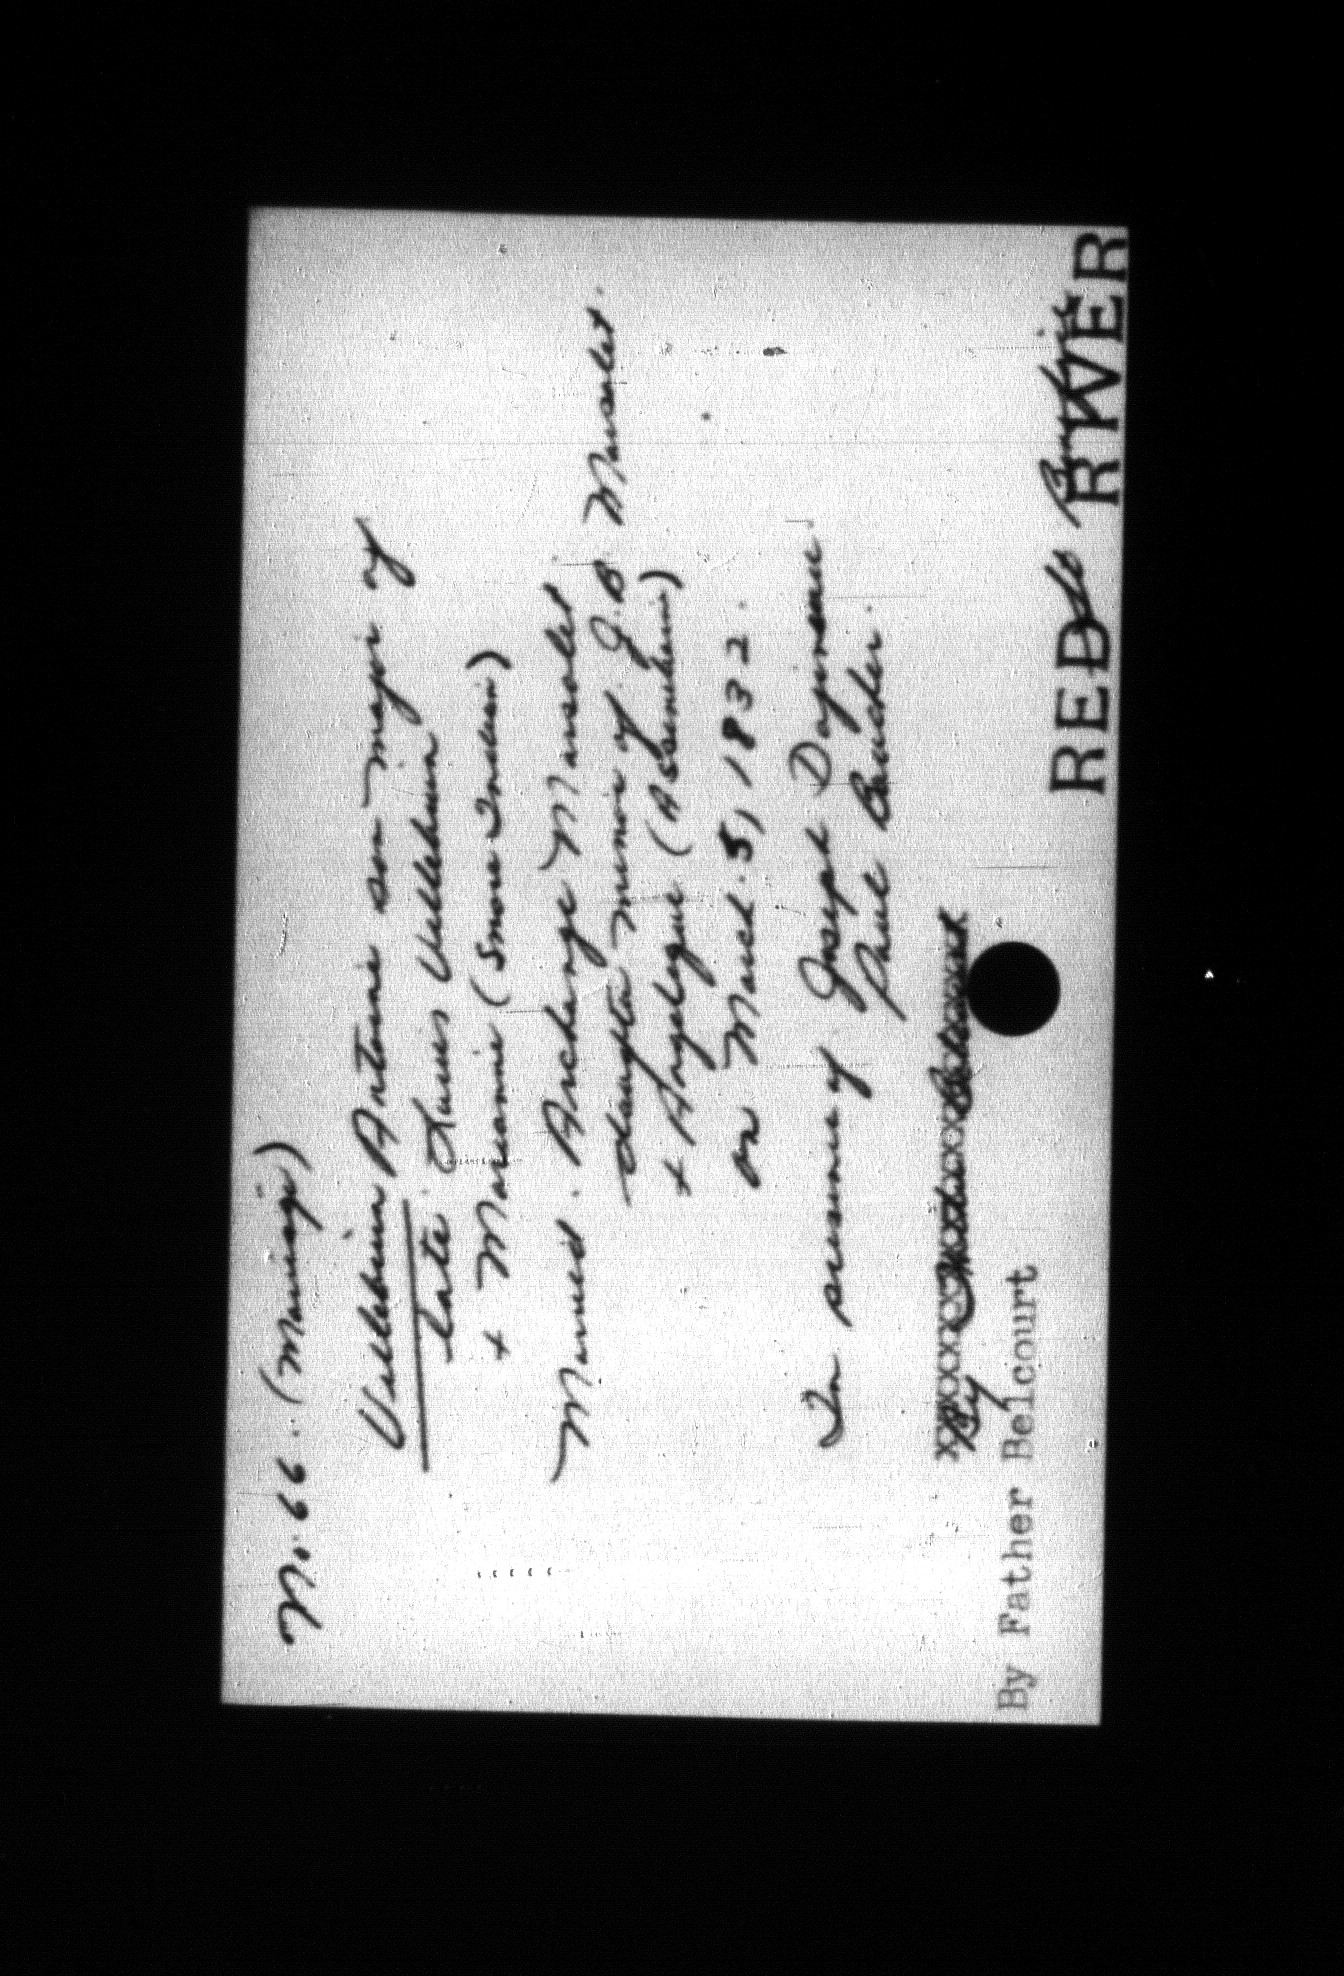 No. 66. (Marriage)
Villebrun Antoine son major of
late Louis Villebrun
+ Marianne (Snare Indian)
Married. Archange Marsolet
daughter minor of J.B. Marsolet.
+ Angelique (Assiniboine)
on March 5, 1832.
In presence of Joseph Dajineau
Paul Boucher.
By
By Father Belcourt
RED RIVER